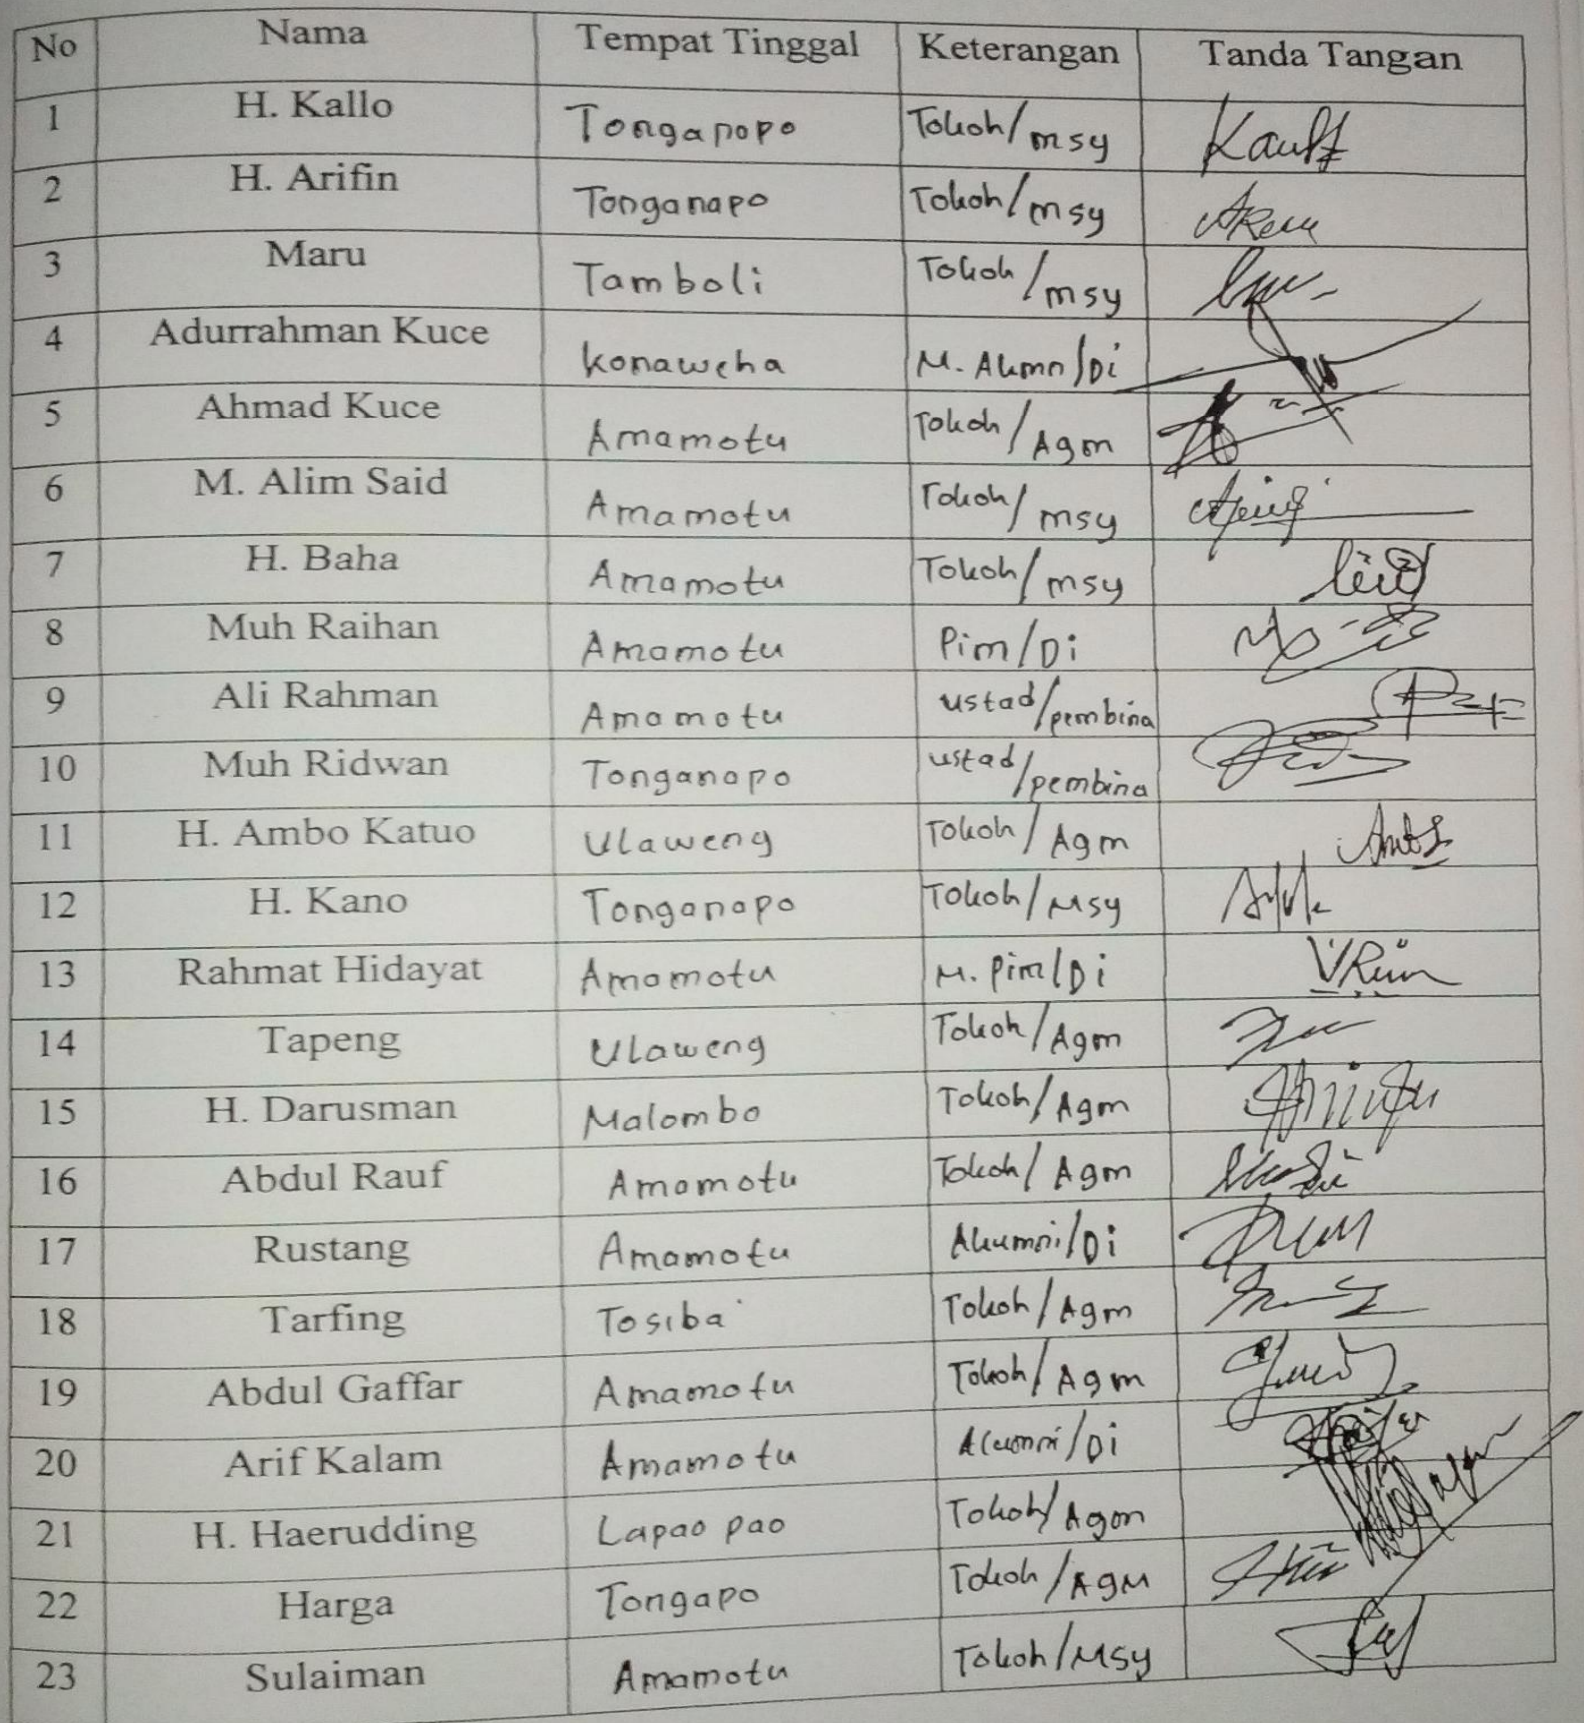 No Nama Tempat Tinggal Keterangan Tanda Tangan
1 H. Kallo Tonganapo Tokoh/msy
2 H. Arifin Tonganapo Tokoh/msy
3 Maru Tamboli Tokoh/msy
4 Adurrahman Kuce Konaweha M. Alumn/Di
5 Ahmad Kuce Amamotu Tokoh/Agm
6 M. Alim Said Amamotu Tokoh/msy
7 H. Baha Amamotu Tokoh/msy
8 Muh Raihan Amamotu Pim/Di
9 Ali Rahman Amamotu ustad/pembina
10 Muh Ridwan Tonganapo ustad/pembina
11 H. Ambo Katuo Ulaweng Tokoh/Agm
12 H. Kano Tonganapo Tokoh/Msy
13 Rahmat Hidayat Amamotu M. Pim/Di
14 Tapeng Ulaweng Tokoh/Agm
15 H. Darusman Malombo Tokoh/Agm
16 Abdul Rauf Amamotu Tokoh/Agm
17 Rustang Amamotu /Di
18 Tarfing Tosiba Tokoh/Agm
19 Abdul Gaffar Amamotu Tokoh/Agm
20 Arif Kalam Amamotu /Di
21 H. Haerudding Lapao pao Tokoh/Agm
22 Harga Tongapo Tokoh/AGM
23 Sulaiman Amamotu Tokoh/Msy